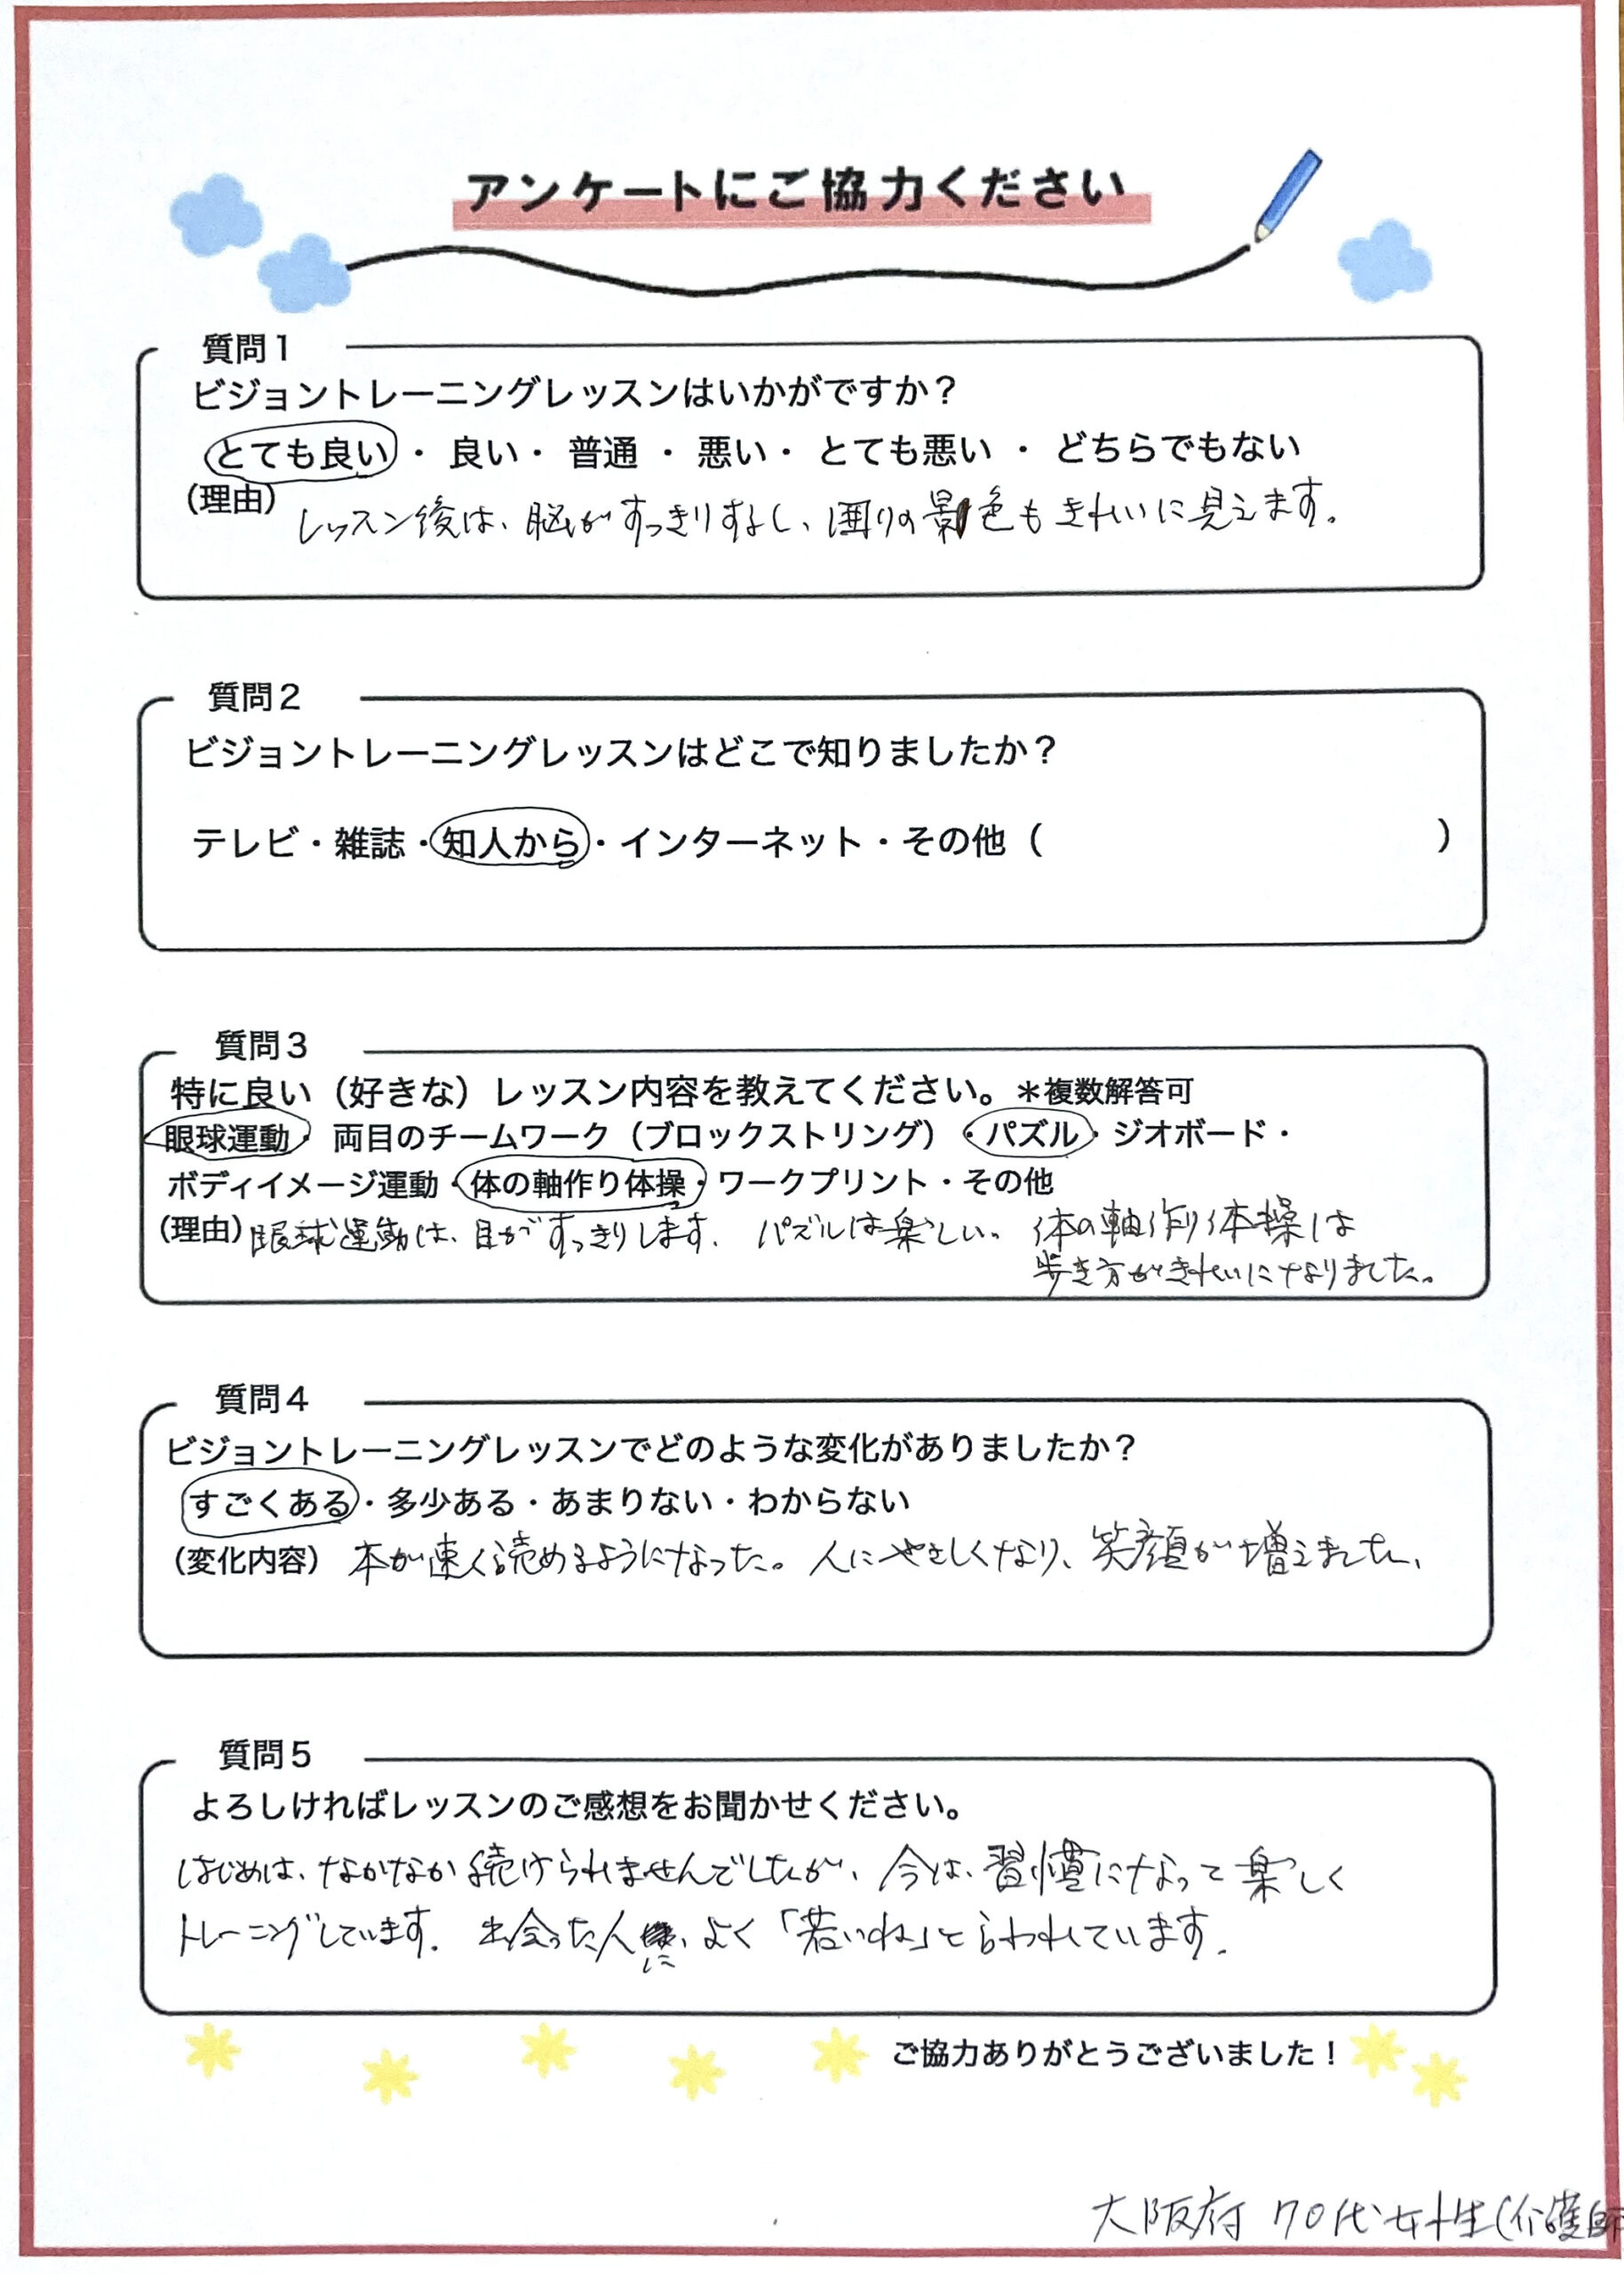 アンケートにご協力ください
質問1
ビジョントレーニングレッスンはいかがですか？
とても良い ・ 良い ・ 普通 ・ 悪い ・ とても悪い ・ どちらでもない
（理由） レッスン後は、脳がすっきりするし、囲りの景色もきれいに見えます。
質問2
ビジョントレーニングレッスンはどこで知りましたか？
テレビ・雑誌・知人から・インターネット・その他（　　　　）
質問3
特に良い（好きな）レッスン内容を教えてください。＊複数解答可
眼球運動・ 両目のチームワーク（ブロックストリング）・パズル・ジオボード・
ボディイメージ運動・体の軸作り体操・ワークプリント・その他
（理由）眼球運動は、目がすっきりします。パズルは楽しい。体の軸作り体操は
歩き方がきれいになりました。
質問4
ビジョントレーニングレッスンでどのような変化がありましたか？
すごくある・多少ある・あまりない・わからない
（変化内容） 本が速く読めるようになった。人にやさしくなり、笑顔が増えました、
質問5
よろしければレッスンのご感想をお聞かせください。
はじめは、なかなか続けられませんでしたが、今は、習慣になって楽しく
トレーニングしています。出会った人に、よく「若いね」と らわれています。
ご協力ありがとうございました！
大阪府 70代女性（介護師